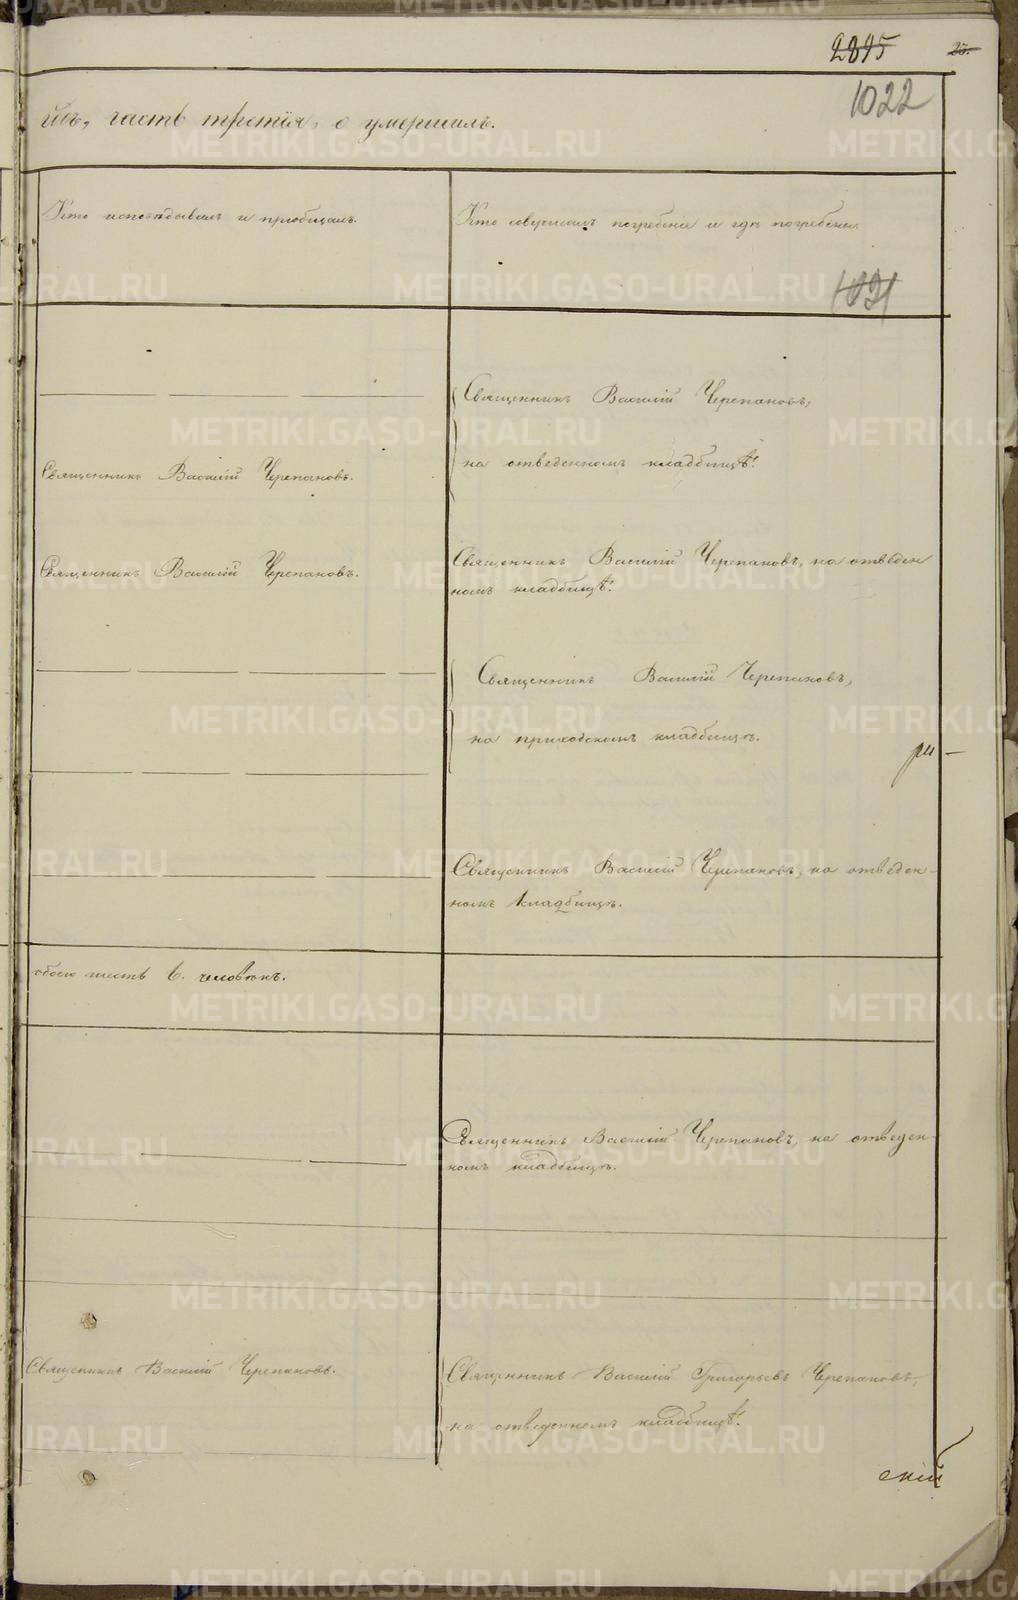 2895 25.
1022
йъ, часть третія, о умершихъ.
Кто исповѣдывалъ и пріобщалъ.
Кто совершалъ погребеніе и гдѣ погребены.
1021
Священникъ Василій Черепановъ,
на отведенномъ кладбищѣ.
Священникъ Василій Черепановъ.
Священникъ Василій Черепановъ.
Священникъ Василій Черепановъ, на отведен
номъ кладбищѣ.
Священникъ Василій Черепановъ,
на приходскомъ кладбищѣ.
ри-
Священникъ Василій Черепановъ, на отведен-
номъ кладбищѣ.
обоего шесть 6. человѣкъ.
Священникъ Василій Черепановъ, на отведен-
номъ кладбищѣ.
Священникъ Василій Черепановъ.
Священникъ Василій Григорьевъ Черепановъ,
на отведенномъ кладбищѣ.
скій
METRIKI.GASO-URAL.RU